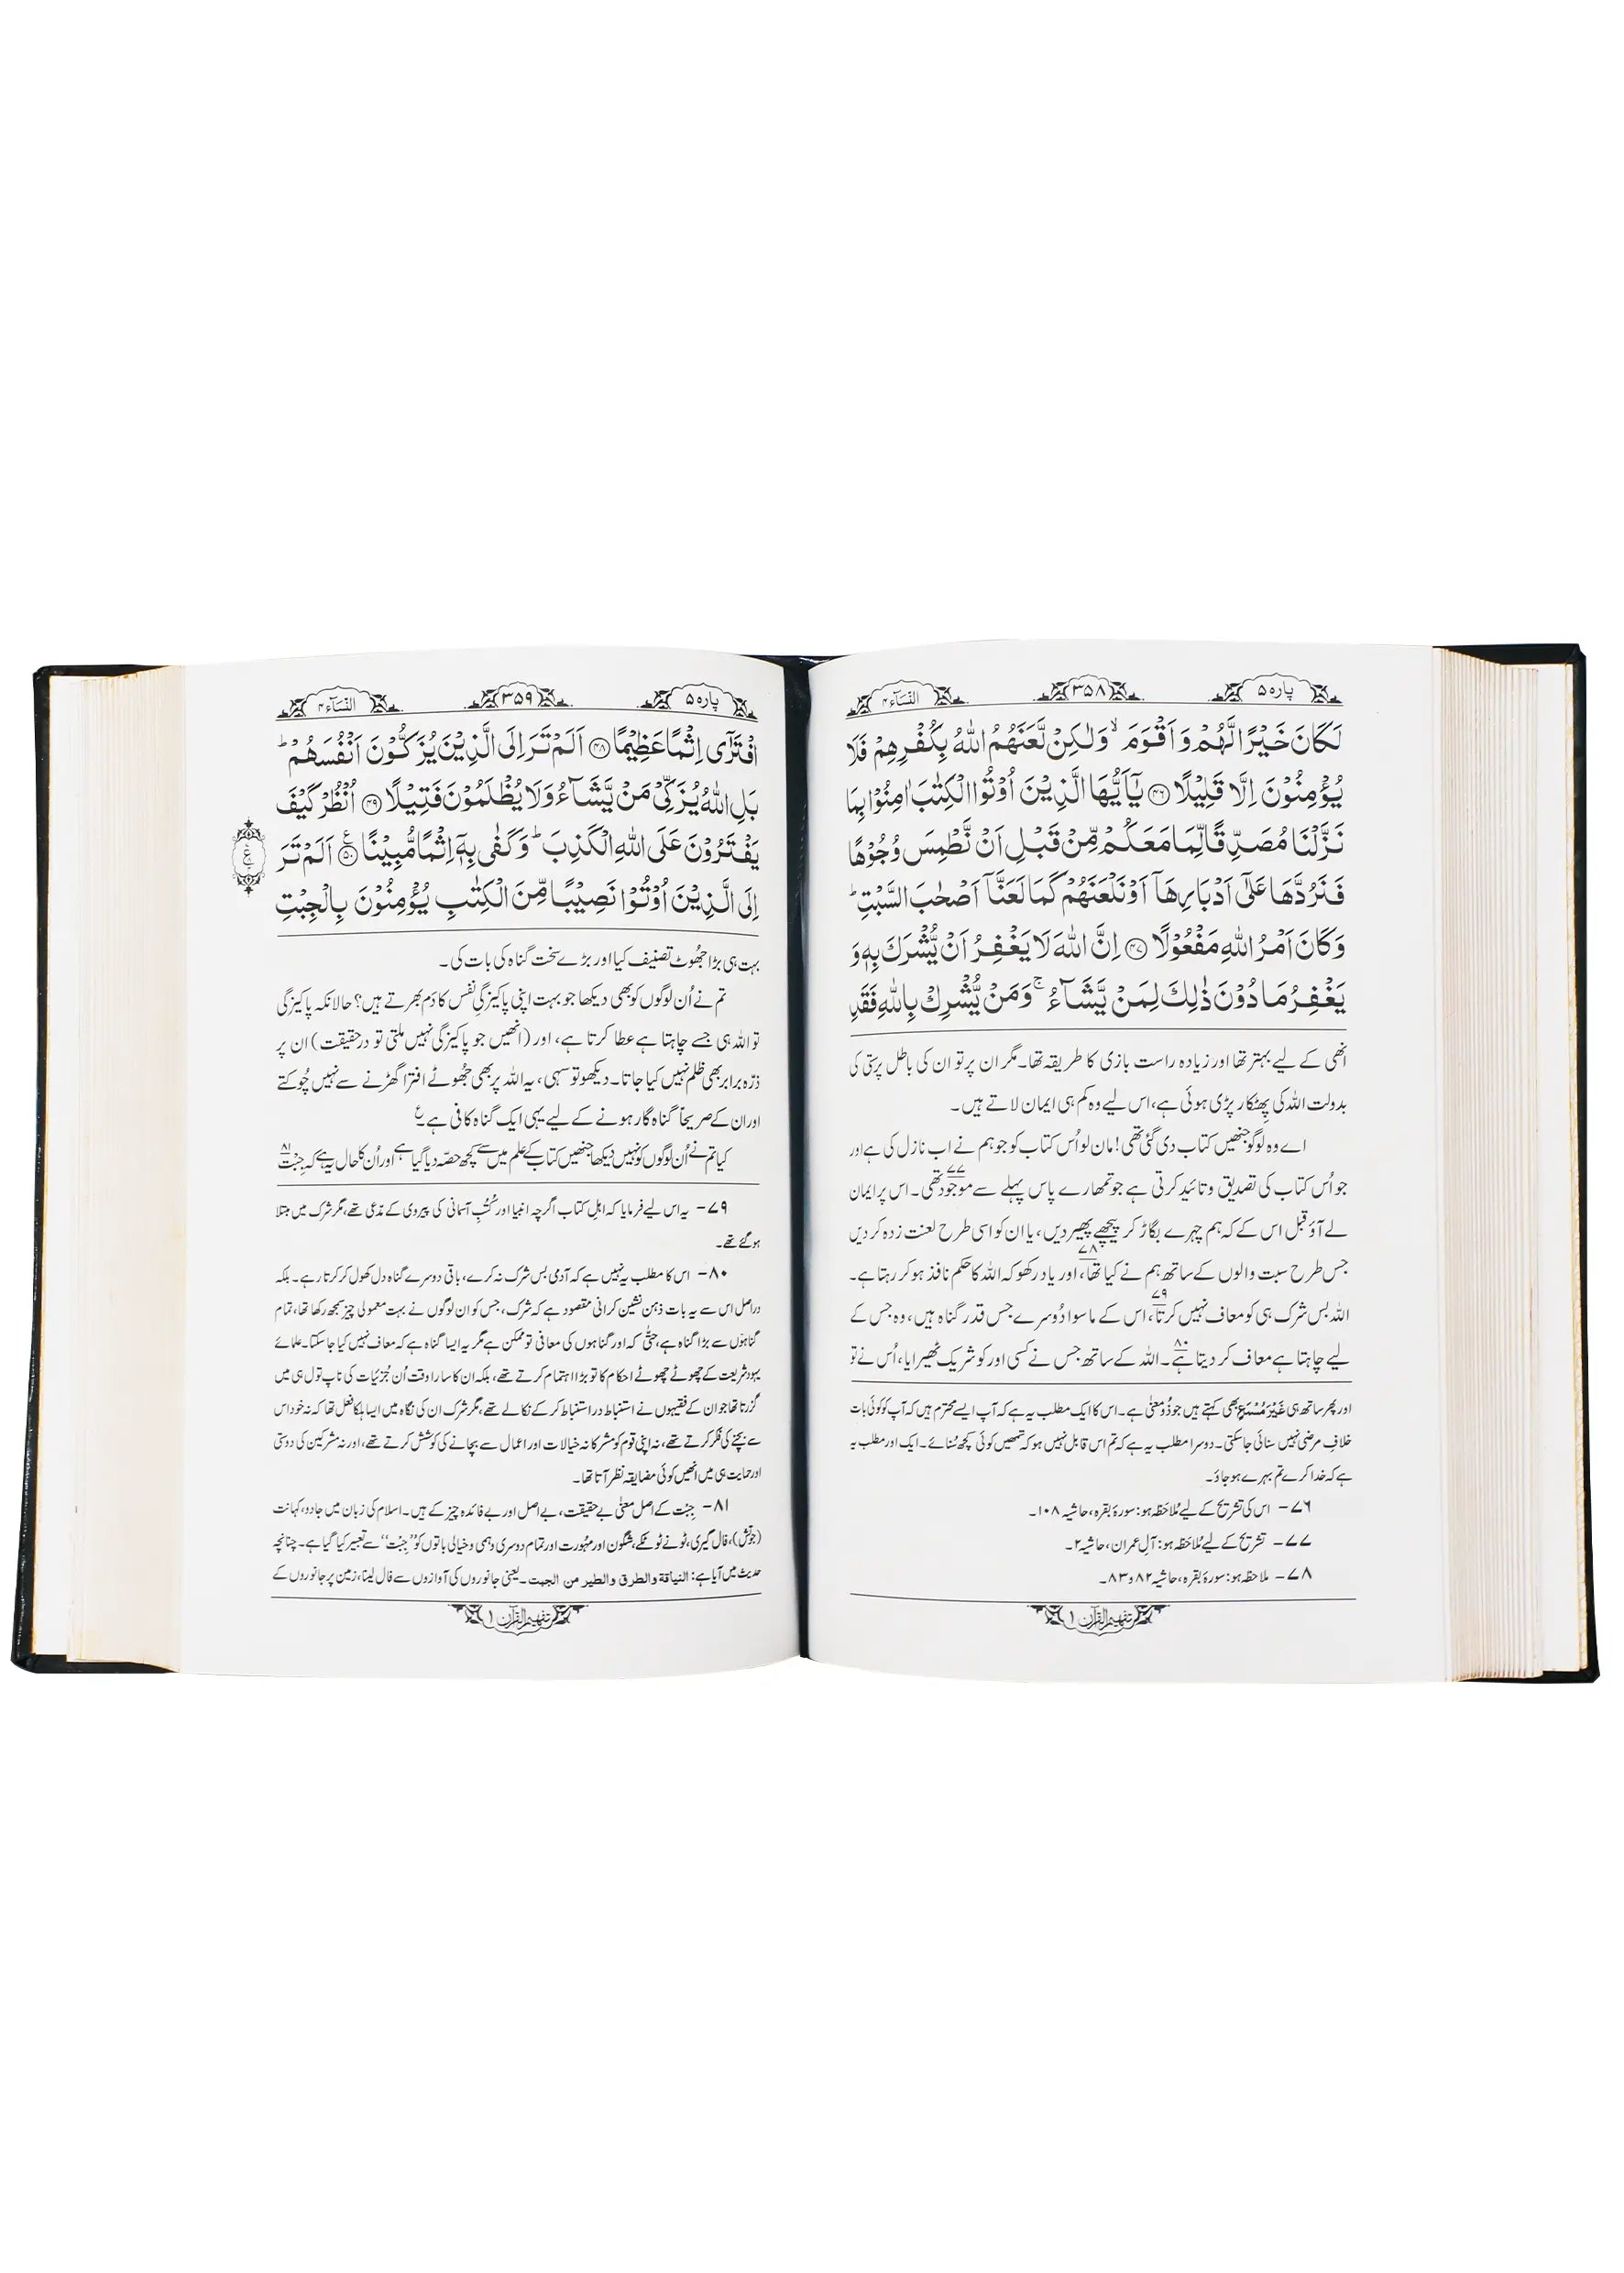 پارہ ۵
۳۵۸
النِّسَآء ۴
لَكَانَ خَيْرًا لَّهُمْ وَاَقْوَمَ ۙ وَلٰكِنْ لَّعَنَهُمُ اللّٰهُ بِكُفْرِهِمْ فَلَا
يُؤْمِنُوْنَ اِلَّا قَلِيْلًا ﴿۴۶﴾ يٰۤاَيُّهَا الَّذِيْنَ اُوْتُوا الْكِتٰبَ اٰمِنُوْا بِمَا
نَزَّلْنَا مُصَدِّقًا لِّمَا مَعَكُمْ مِّنْ قَبْلِ اَنْ نَّطْمِسَ وُجُوْهًا
فَنَرُدَّهَا عَلٰۤى اَدْبَارِهَاۤ اَوْ نَلْعَنَهُمْ كَمَا لَعَنَّاۤ اَصْحٰبَ السَّبْتِ ؕ
وَكَانَ اَمْرُ اللّٰهِ مَفْعُوْلًا ﴿۴۷﴾ اِنَّ اللّٰهَ لَا يَغْفِرُ اَنْ يُّشْرَكَ بِهٖ وَ
يَغْفِرُ مَا دُوْنَ ذٰلِكَ لِمَنْ يَّشَآءُ ۚ وَمَنْ يُّشْرِكْ بِاللّٰهِ فَقَدِ
انھی کے لیے بہتر تھا اور زیادہ راست بازی کا طریقہ تھا۔ مگر ان پر تو ان کی باطل پرستی کی
بدولت اللہ کی پِھٹکار پڑی ہوئی ہے، اس لیے وہ کم ہی ایمان لاتے ہیں۔
اے وہ لوگو جنھیں کتاب دی گئی تھی! مان لو اُس کتاب کو جو ہم نے اب نازل کی ہے اور
جو اُس کتاب کی تصدیق و تائید کرتی ہے جو تمھارے پاس پہلے سے موجود تھی۷۷۔ اس پر ایمان
لے آؤ قبل اس کے کہ ہم چہرے بگاڑ کر پیچھے پھیر دیں، یا ان کو اسی طرح لعنت زدہ کر دیں
جس طرح سبت والوں کے ساتھ ہم نے کیا تھا۷۸، اور یاد رکھو کہ اللہ کا حکم نافذ ہو کر رہتا ہے۔
اللہ بس شرک ہی کو معاف نہیں کرتا۷۹، اس کے ماسوا دُوسرے جس قدر گناہ ہیں، وہ جس کے
لیے چاہتا ہے معاف کر دیتا ہے۸۰۔ اللہ کے ساتھ جس نے کسی اور کو شریک ٹھیرایا، اُس نے تو
اور پھر ساتھ ہی غَيْرَ مُسْمَعٍ بھی کہتے ہیں جو ذُو معنیٰ ہے۔ اس کا ایک مطلب یہ ہے کہ آپ ایسے محترم ہیں کہ آپ کو کوئی بات
خلافِ مرضی نہیں سنائی جا سکتی۔ دوسرا مطلب یہ ہے کہ تم اس قابل نہیں ہو کہ تمھیں کوئی کچھ سُنائے۔ ایک اور مطلب یہ
ہے کہ خدا کرے تم بہرے ہو جاؤ۔
۷۶- اس کی تشریح کے لیے مُلاحظہ ہو: سورۂ بقرہ، حاشیہ ۱۰۸۔
۷۷- تشریح کے لیے مُلاحظہ ہو: آلِ عمران، حاشیہ ۲۔
۷۸- ملاحظہ ہو: سورۂ بقرہ، حاشیہ ۸۲ و ۸۳۔
تفہیم القرآن ۱
پارہ ۵
۳۵۹
النِّسَآء ۴
افْتَرٰۤى اِثْمًا عَظِيْمًا ﴿۴۸﴾ اَلَمْ تَرَ اِلَى الَّذِيْنَ يُزَكُّوْنَ اَنْفُسَهُمْ ؕ
بَلِ اللّٰهُ يُزَكِّيْ مَنْ يَّشَآءُ وَلَا يُظْلَمُوْنَ فَتِيْلًا ﴿۴۹﴾ اُنْظُرْ كَيْفَ
يَفْتَرُوْنَ عَلَى اللّٰهِ الْكَذِبَ ؕ وَكَفٰى بِهٖۤ اِثْمًا مُّبِيْنًا ﴿۵۰﴾ ع اَلَمْ تَرَ
اِلَى الَّذِيْنَ اُوْتُوْا نَصِيْبًا مِّنَ الْكِتٰبِ يُؤْمِنُوْنَ بِالْجِبْتِ
بہت ہی بڑا جُھوٹ تصنیف کیا اور بڑے سخت گناہ کی بات کی۔
تم نے اُن لوگوں کو بھی دیکھا جو بہت اپنی پاکیزگیِ نفس کا دَم بھرتے ہیں؟ حالانکہ پاکیزگی
تو اللہ ہی جسے چاہتا ہے عطا کرتا ہے، اور (انھیں جو پاکیزگی نہیں ملتی تو درحقیقت) ان پر
ذرّہ برابر بھی ظلم نہیں کیا جاتا۔ دیکھو تو سہی، یہ اللہ پر بھی جُھوٹے افترا گھڑنے سے نہیں چُوکتے
اور ان کے صریحاً گناہ گار ہونے کے لیے یہی ایک گناہ کافی ہے۔ ع
کیا تم نے اُن لوگوں کو نہیں دیکھا جنھیں کتاب کے علم میں سے کچھ حصّہ دیا گیا ہے اور اُن کا حال یہ ہے کہ جِبْت۸۱
۷۹- یہ اس لیے فرمایا کہ اہلِ کتاب اگرچہ انبیا اور کُتُبِ آسمانی کی پیروی کے مدّعی تھے، مگر شرک میں مبتلا
ہو گئے تھے۔
۸۰- اس کا مطلب یہ نہیں ہے کہ آدمی بس شرک نہ کرے، باقی دوسرے گناہ دل کھول کر کرتا رہے۔ بلکہ
دراصل اس سے یہ بات ذہن نشین کرانی مقصود ہے کہ شرک، جس کو ان لوگوں نے بہت معمولی چیز سمجھ رکھا تھا، تمام
گناہوں سے بڑا گناہ ہے، حتّٰی کہ اور گناہوں کی معافی تو ممکن ہے مگر یہ ایسا گناہ ہے کہ معاف نہیں کیا جا سکتا۔ علمائے
یہود شریعت کے چھوٹے چھوٹے احکام کا تو بڑا اہتمام کرتے تھے، بلکہ ان کا سارا وقت اُن جُزئیات کی ناپ تول ہی میں
گزرتا تھا جو ان کے فقیہوں نے استنباط در استنباط کر کے نکالے تھے، مگر شرک ان کی نگاہ میں ایسا ہلکا فعل تھا کہ نہ خود اس
سے بچنے کی فکر کرتے تھے، نہ اپنی قوم کو مشرکانہ خیالات اور اعمال سے بچانے کی کوشش کرتے تھے، اور نہ مشرکین کی دوستی
اور حمایت ہی میں انھیں کوئی مضایقہ نظر آتا تھا۔
۸۱- جِبْت کے اصل معنیٰ بے حقیقت، بے اصل اور بے فائدہ چیز کے ہیں۔ اسلام کی زبان میں جادو، کہانت
(جوتش)، فال گیری، ٹونے ٹوٹکے، شگون اور مہُورت اور تمام دوسری وہمی و خیالی باتوں کو ”جِبْت“ سے تعبیر کیا گیا ہے۔ چنانچہ
حدیث میں آیا ہے: النیاقة والطرق والطیر من الجبت۔ یعنی جانوروں کی آوازوں سے فال لینا، زمین پر جانوروں کے
تفہیم القرآن ۱